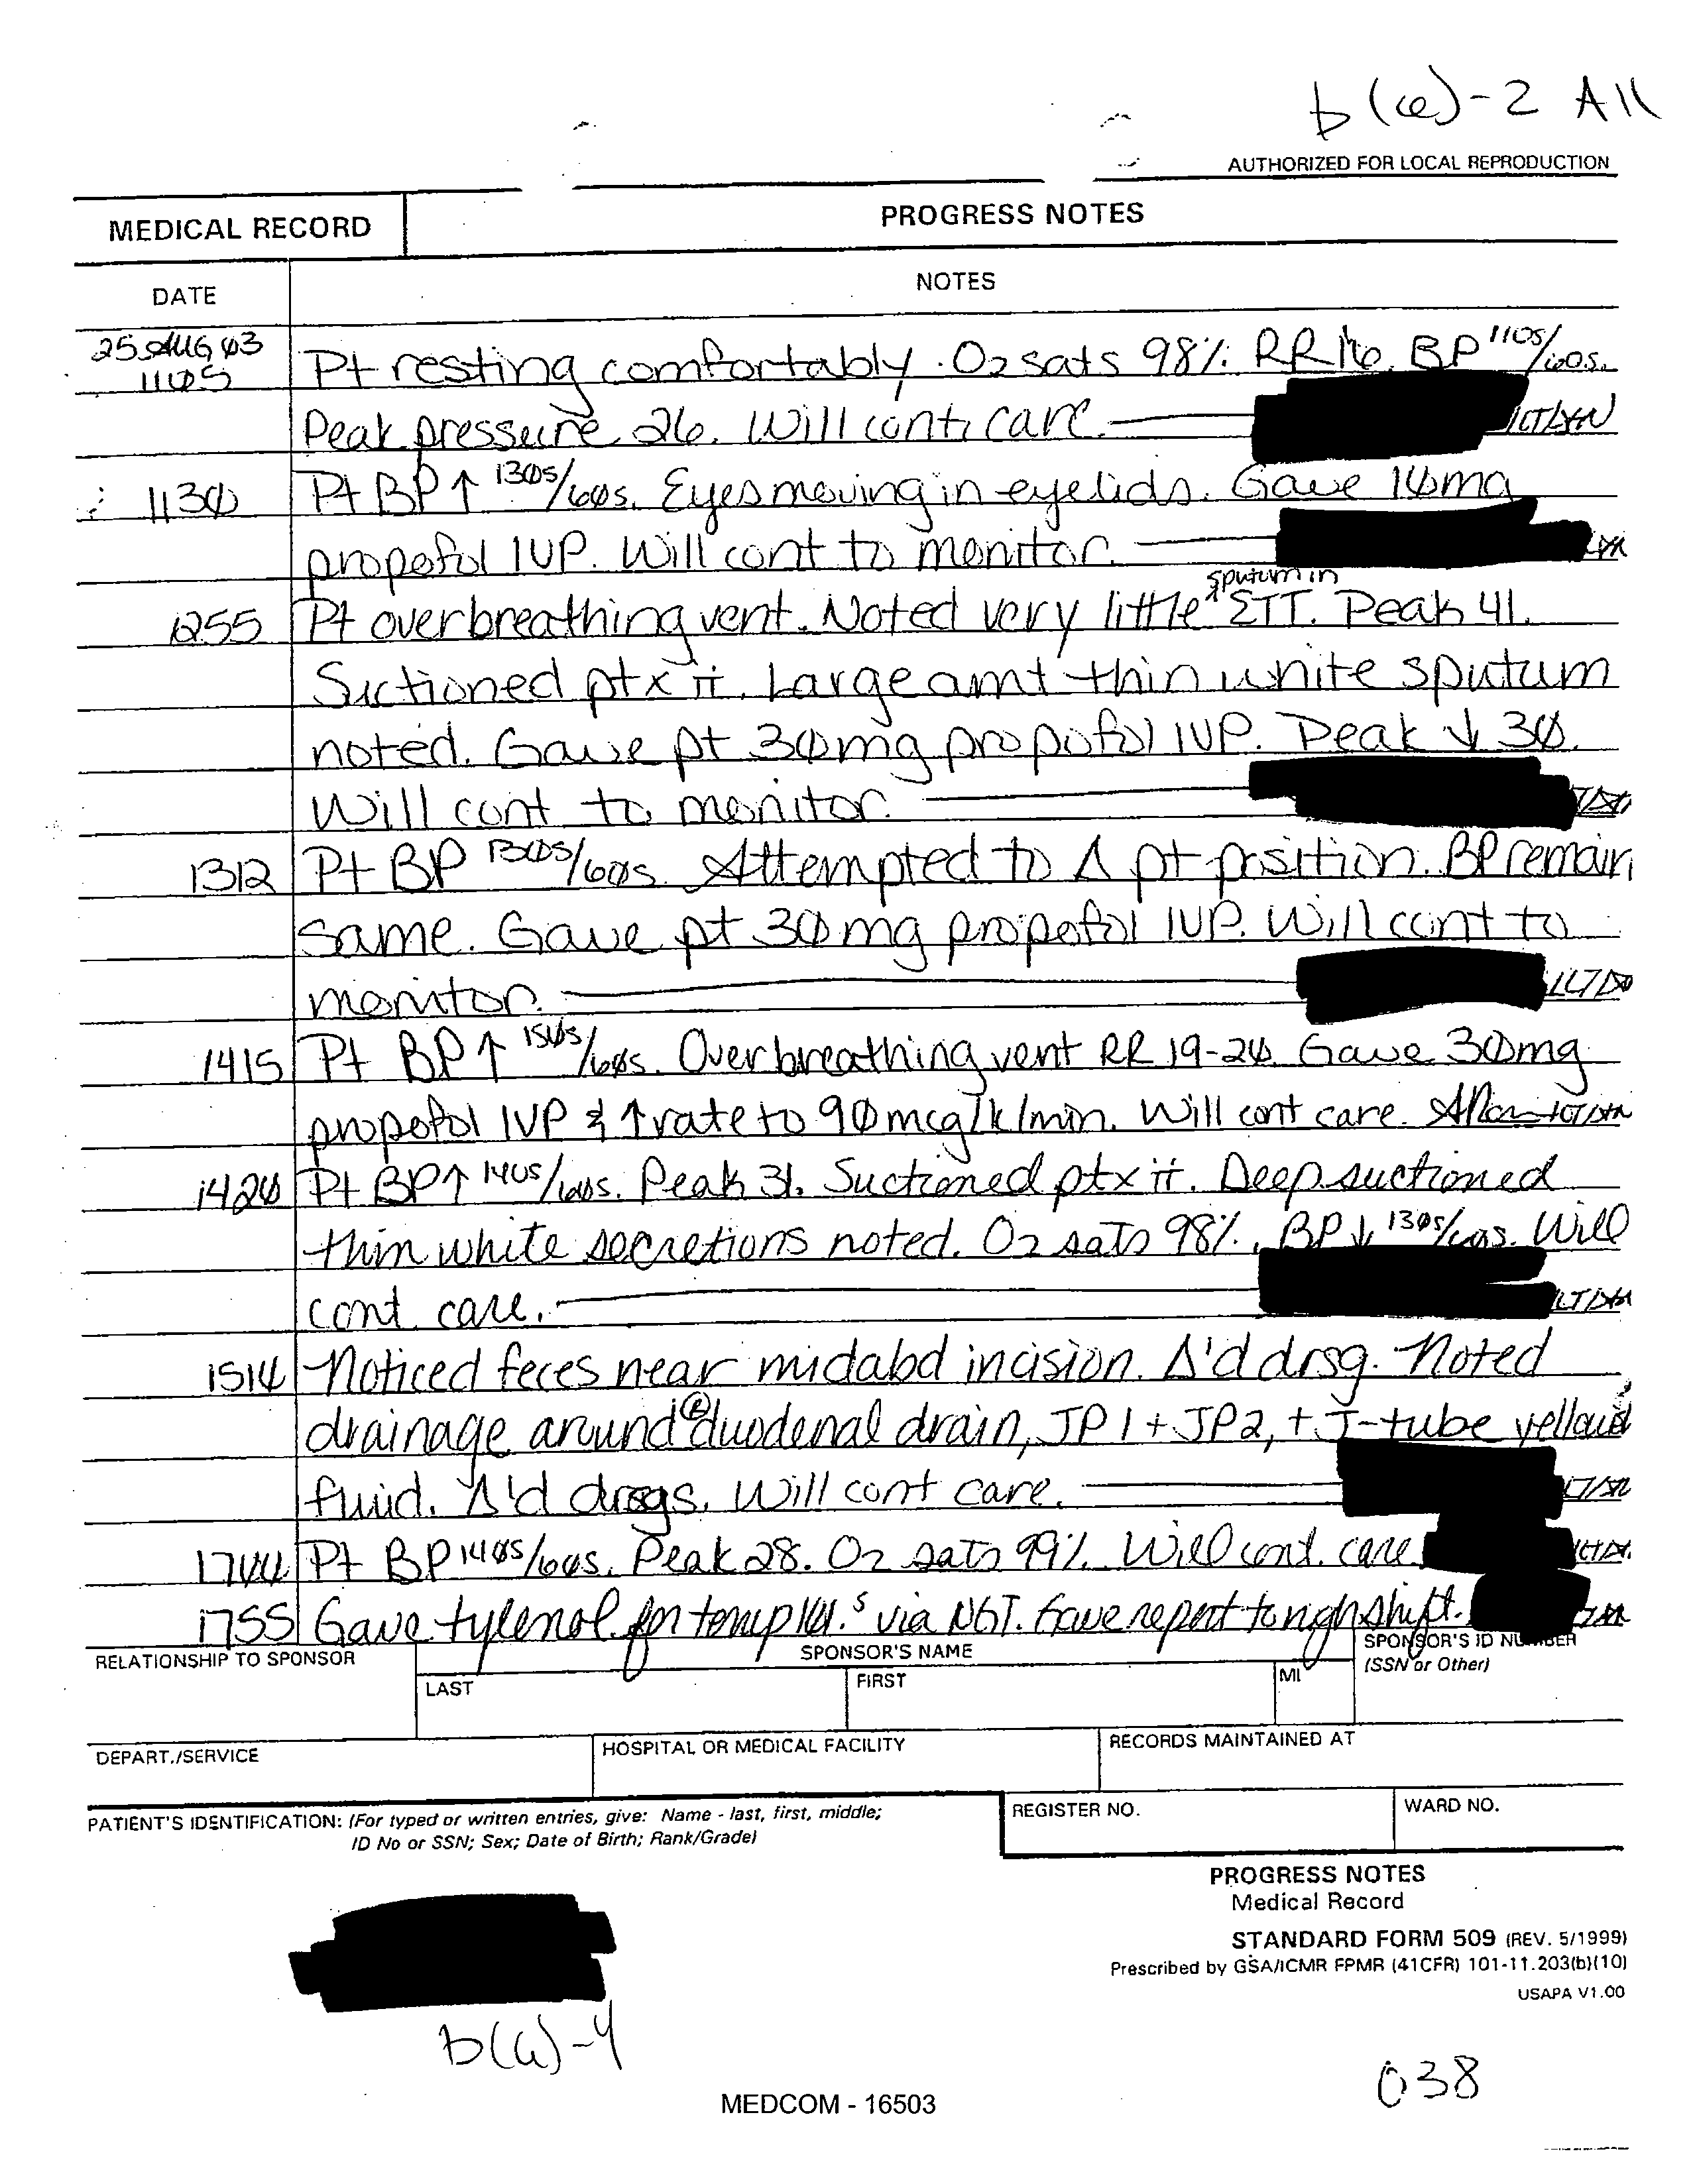 b(6)-2 All
AUTHORIZED FOR LOCAL REPRODUCTION
MEDICAL RECORD
PROGRESS NOTES
DATE
NOTES
25 AUG 03
1105 Pt resting comfortably. O2 sats 98%. RR 16. BP 110s/60s.
Peak pressure 26. Will conti care.
1130 Pt BP ↑ 130s/60s. Eyes moving in eyelids. Gave 10mg
propofol IVP. Will cont to monitor.
sputum in
1255 Pt overbreathing vent. Noted very little ^ ETT. Peak 41.
Suctioned pt x ii. Large amt thin white sputum
noted. Gave pt 30mg propofol IVP. Peak ↓ 30.
Will cont to monitor.
1312 Pt BP 130s/60s. Attempted to Δ pt position. BP remain
same. Gave pt 30mg propofol IVP. Will cont to
monitor.
1415 Pt BP ↑ 150s/60s. Overbreathing vent RR 19-20. Gave 30mg
propofol IVP & ↑ rate to 90mcg/k/min. Will cont care.
1420 Pt BP ↑ 140s/60s. Peak 31. Suctioned pt x ii. Deep suctioned
thin white secretions noted. O2 sats 98%. BP ↓ 130s/60s. Will
cont care.
1514 Noticed feces near midabd incision. Δ'd drsg. Noted
drainage around ® duodenal drain, JP1 + JP2, + J-tube
fluid. Δ'd drsgs. Will cont care.
Pt BP 140s/60s. Peak 28. O2 sats 99%. Will cont. care
1755 Gave tylenol for temp via NGT. Gave report to nigh shift.
RELATIONSHIP TO SPONSOR
SPONSOR'S NAME
SPONSOR'S ID NUMBER
(SSN or Other)
LAST
FIRST
MI
DEPART./SERVICE
HOSPITAL OR MEDICAL FACILITY
RECORDS MAINTAINED AT
PATIENT'S IDENTIFICATION: (For typed or written entries, give: Name - last, first, middle;
ID No or SSN; Sex; Date of Birth; Rank/Grade)
REGISTER NO.
WARD NO.
PROGRESS NOTES
Medical Record
STANDARD FORM 509 (REV. 5/1999)
Prescribed by GSA/ICMR FPMR (41CFR) 101-11.203(b)(10)
USAPA V1.00
b(6)-4
038
MEDCOM - 16503